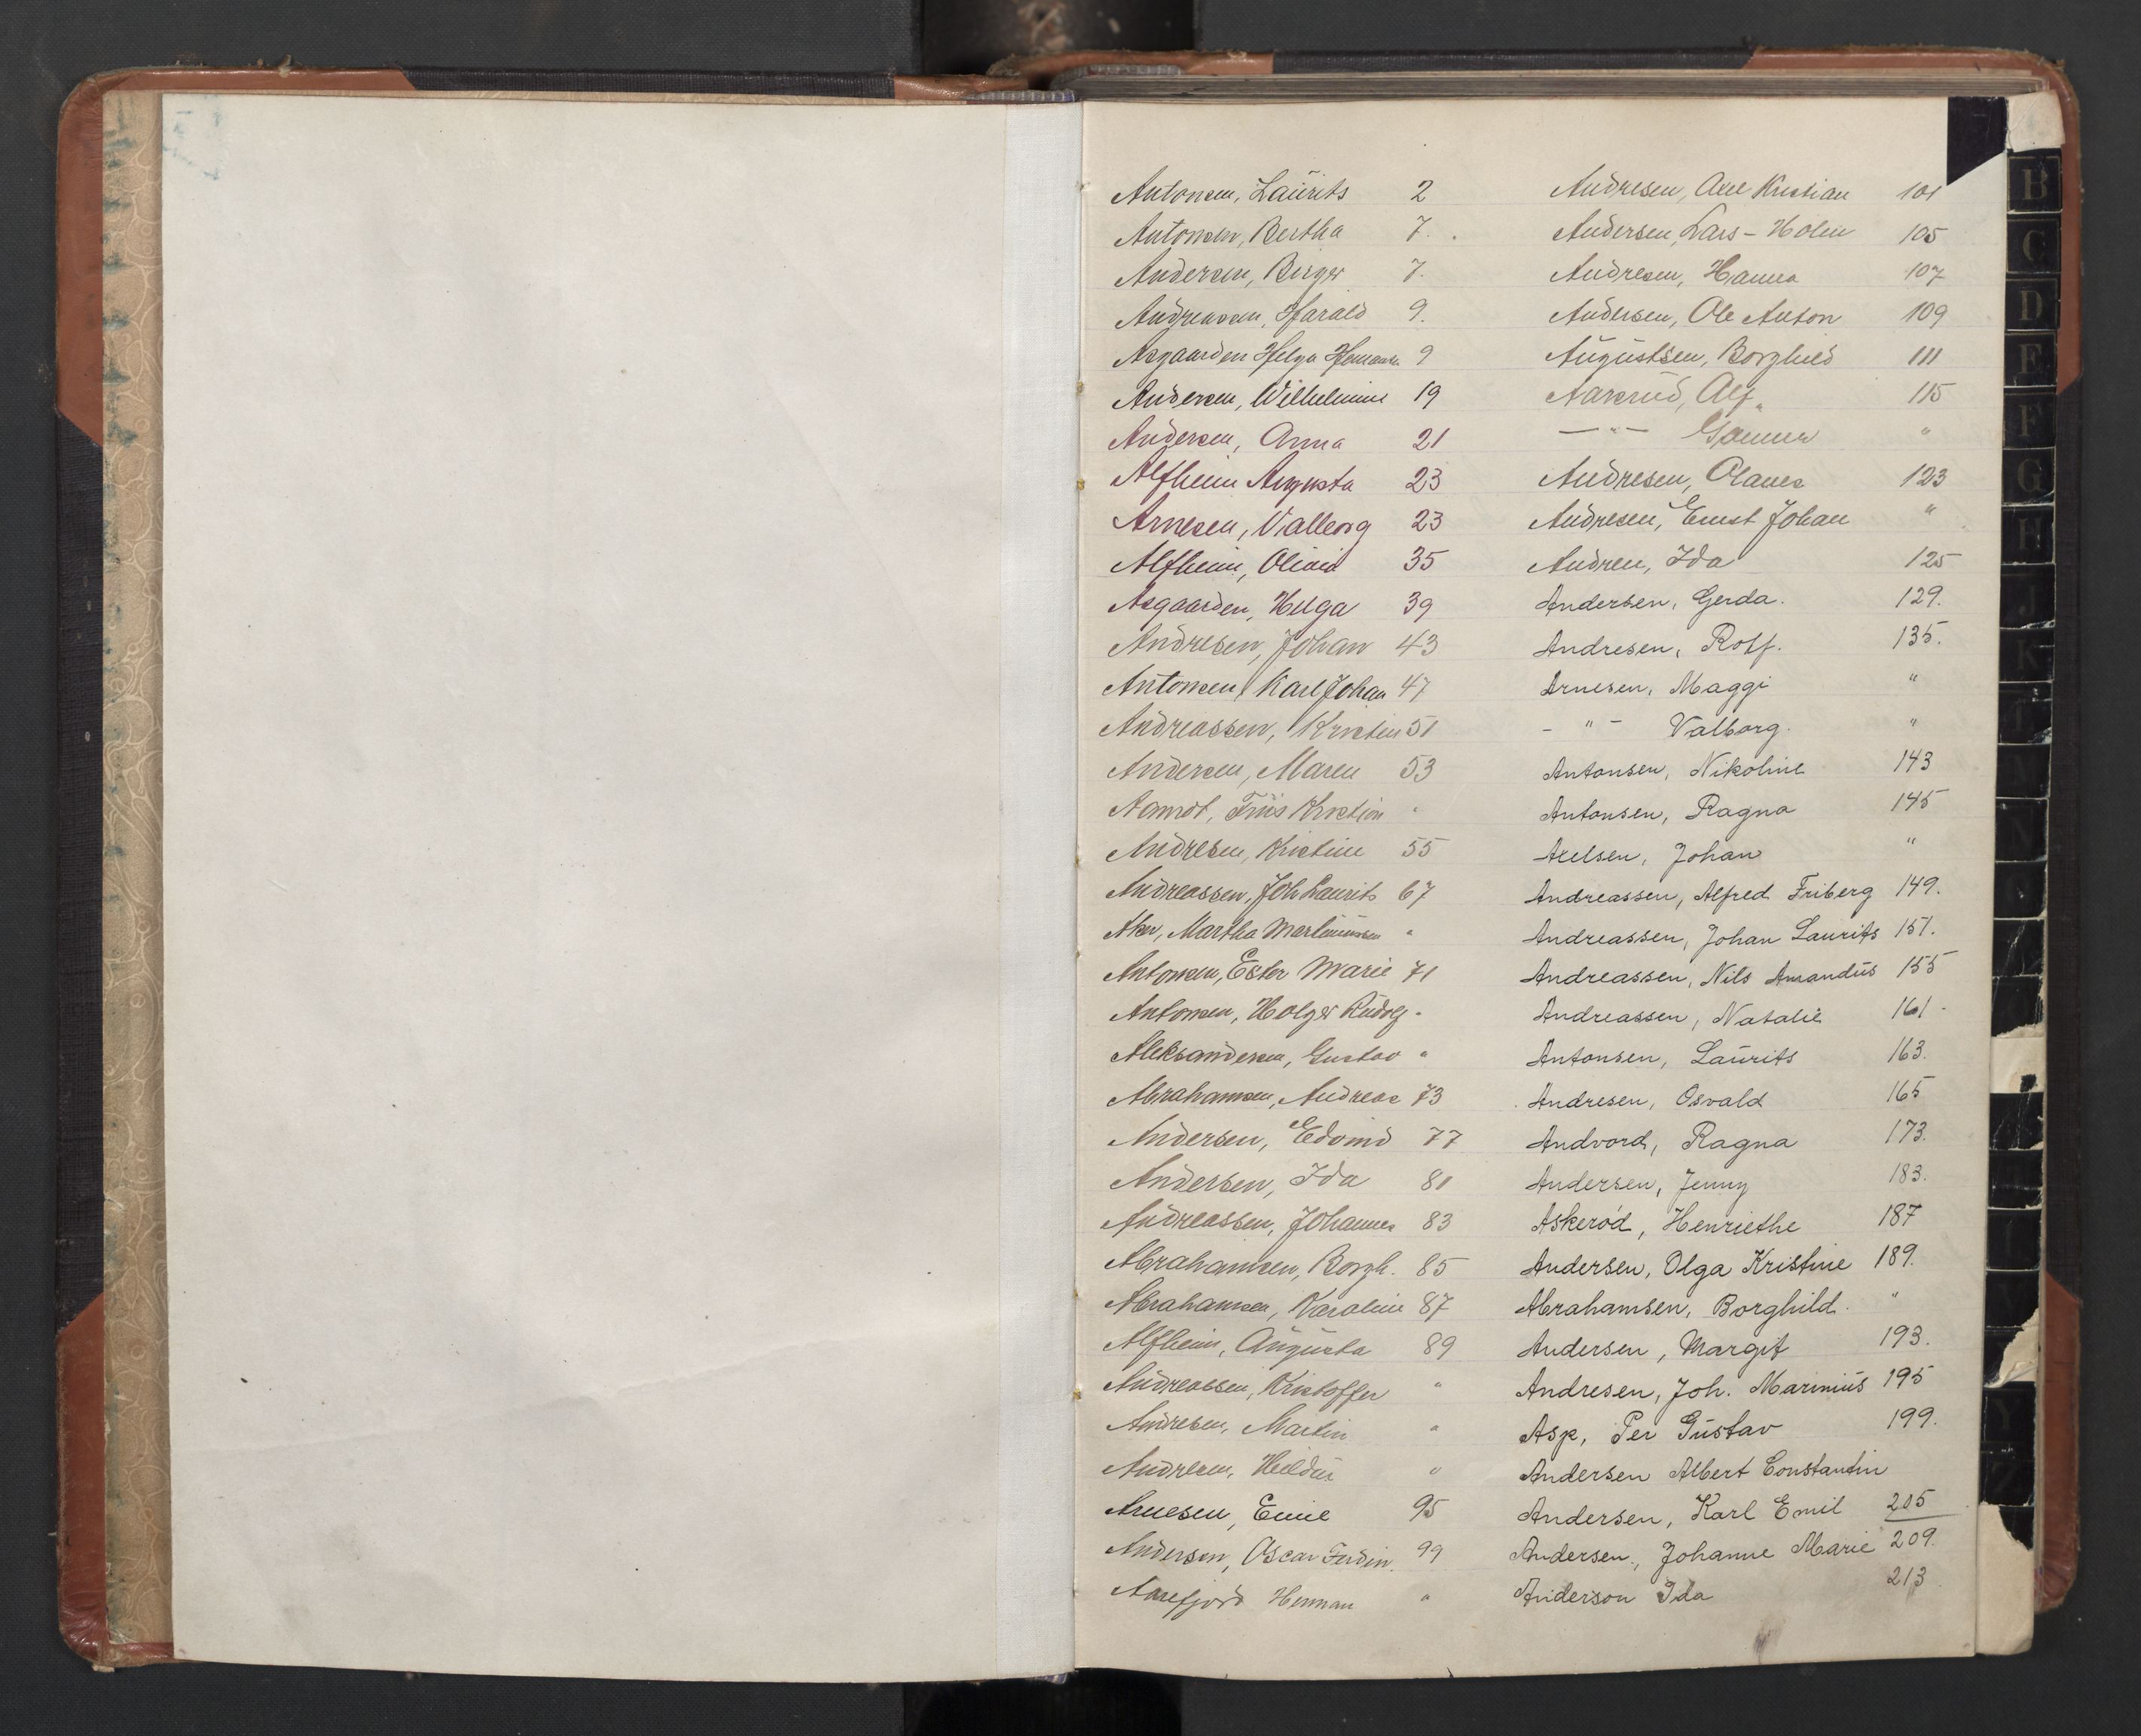 Antonsen, Laurits 2
Antonsen, Bertha 7.
Andersen, Birger 7.
Andreassen, Harald 9.
Asgaarden Helga 9
Andersen, Wilhelmine 19
Andersen, Anna 21
Alfheim Augusta 23
Arnesen, Valborg 23
Alfheim, Olivia 35
Asgaarden, Helga 39
Andresen, Johan 43
Antonsen, Karl Johan 47
Andreassen, Kristin 51
Andersen, Maren 53
Aamot, Friis Kristian "
Andresen, Kristine 55
Andreassen, Joh Laurits 67
Aker, Martha Martinussen "
Antonsen, Ester Marie 71
Antonsen, Holger Rudolf "
Aleksandersen, Gustav "
Abrahamsen, Andreas 73
Andersen, Edvind 77
Andersen, Ida 81
Andreassen, Johannes 83
Abrahamsen, Borgh. 85
Abrahamsen, Karoline 87
Alfheim, Augusta 89
Andreassen, Kristoffer "
Andresen, Martin "
Andresen, "
Arnesen, Emil 95
Andersen, Oscar Ferdin. 99
Herman "
Andresen, Axel Kristian 101
Andersen, Lars - Holm 105
Andresen, Hanna 107
Andersen, Ole Anton 109
Augustsen, Borghild 111
Aarsrud, Alf 115
— " — Gunnar "
Andresen, Olaves 123
Andresen, Ernst Johan "
Andren, Ida 125
Andersen, Gerda. 129.
Andresen, Rolf. 135.
Arnesen, Maggi "
- " - Valborg. "
Antonsen, Nikoline 143
Antonsen, Ragna 145
Axelsen, Johan "
Andreassen, Alfred Friberg 149.
Andreassen, Johan Laurits 151.
Andreassen, Nils Amandus 155
Andreassen, Natalie 161
Antonsen, Laurits 163.
Andresen, Osvald 165
Andvord, Ragna 173.
Andersen, Jenny 183.
Askerød, Henriethe 187
Andersen, Olga Kristine 189.
Abrahamsen, Borghild. "
Andersen, Margit 193.
Andresen, Joh. Marinius 195
Asp, Per Gustav 199.
Andersen Albert Constantin
Andersen, Karl Emil 205
Andersen, Johanne Marie 209.
Anderson Ida 213
B
C
D
E
F
G
H
J
K